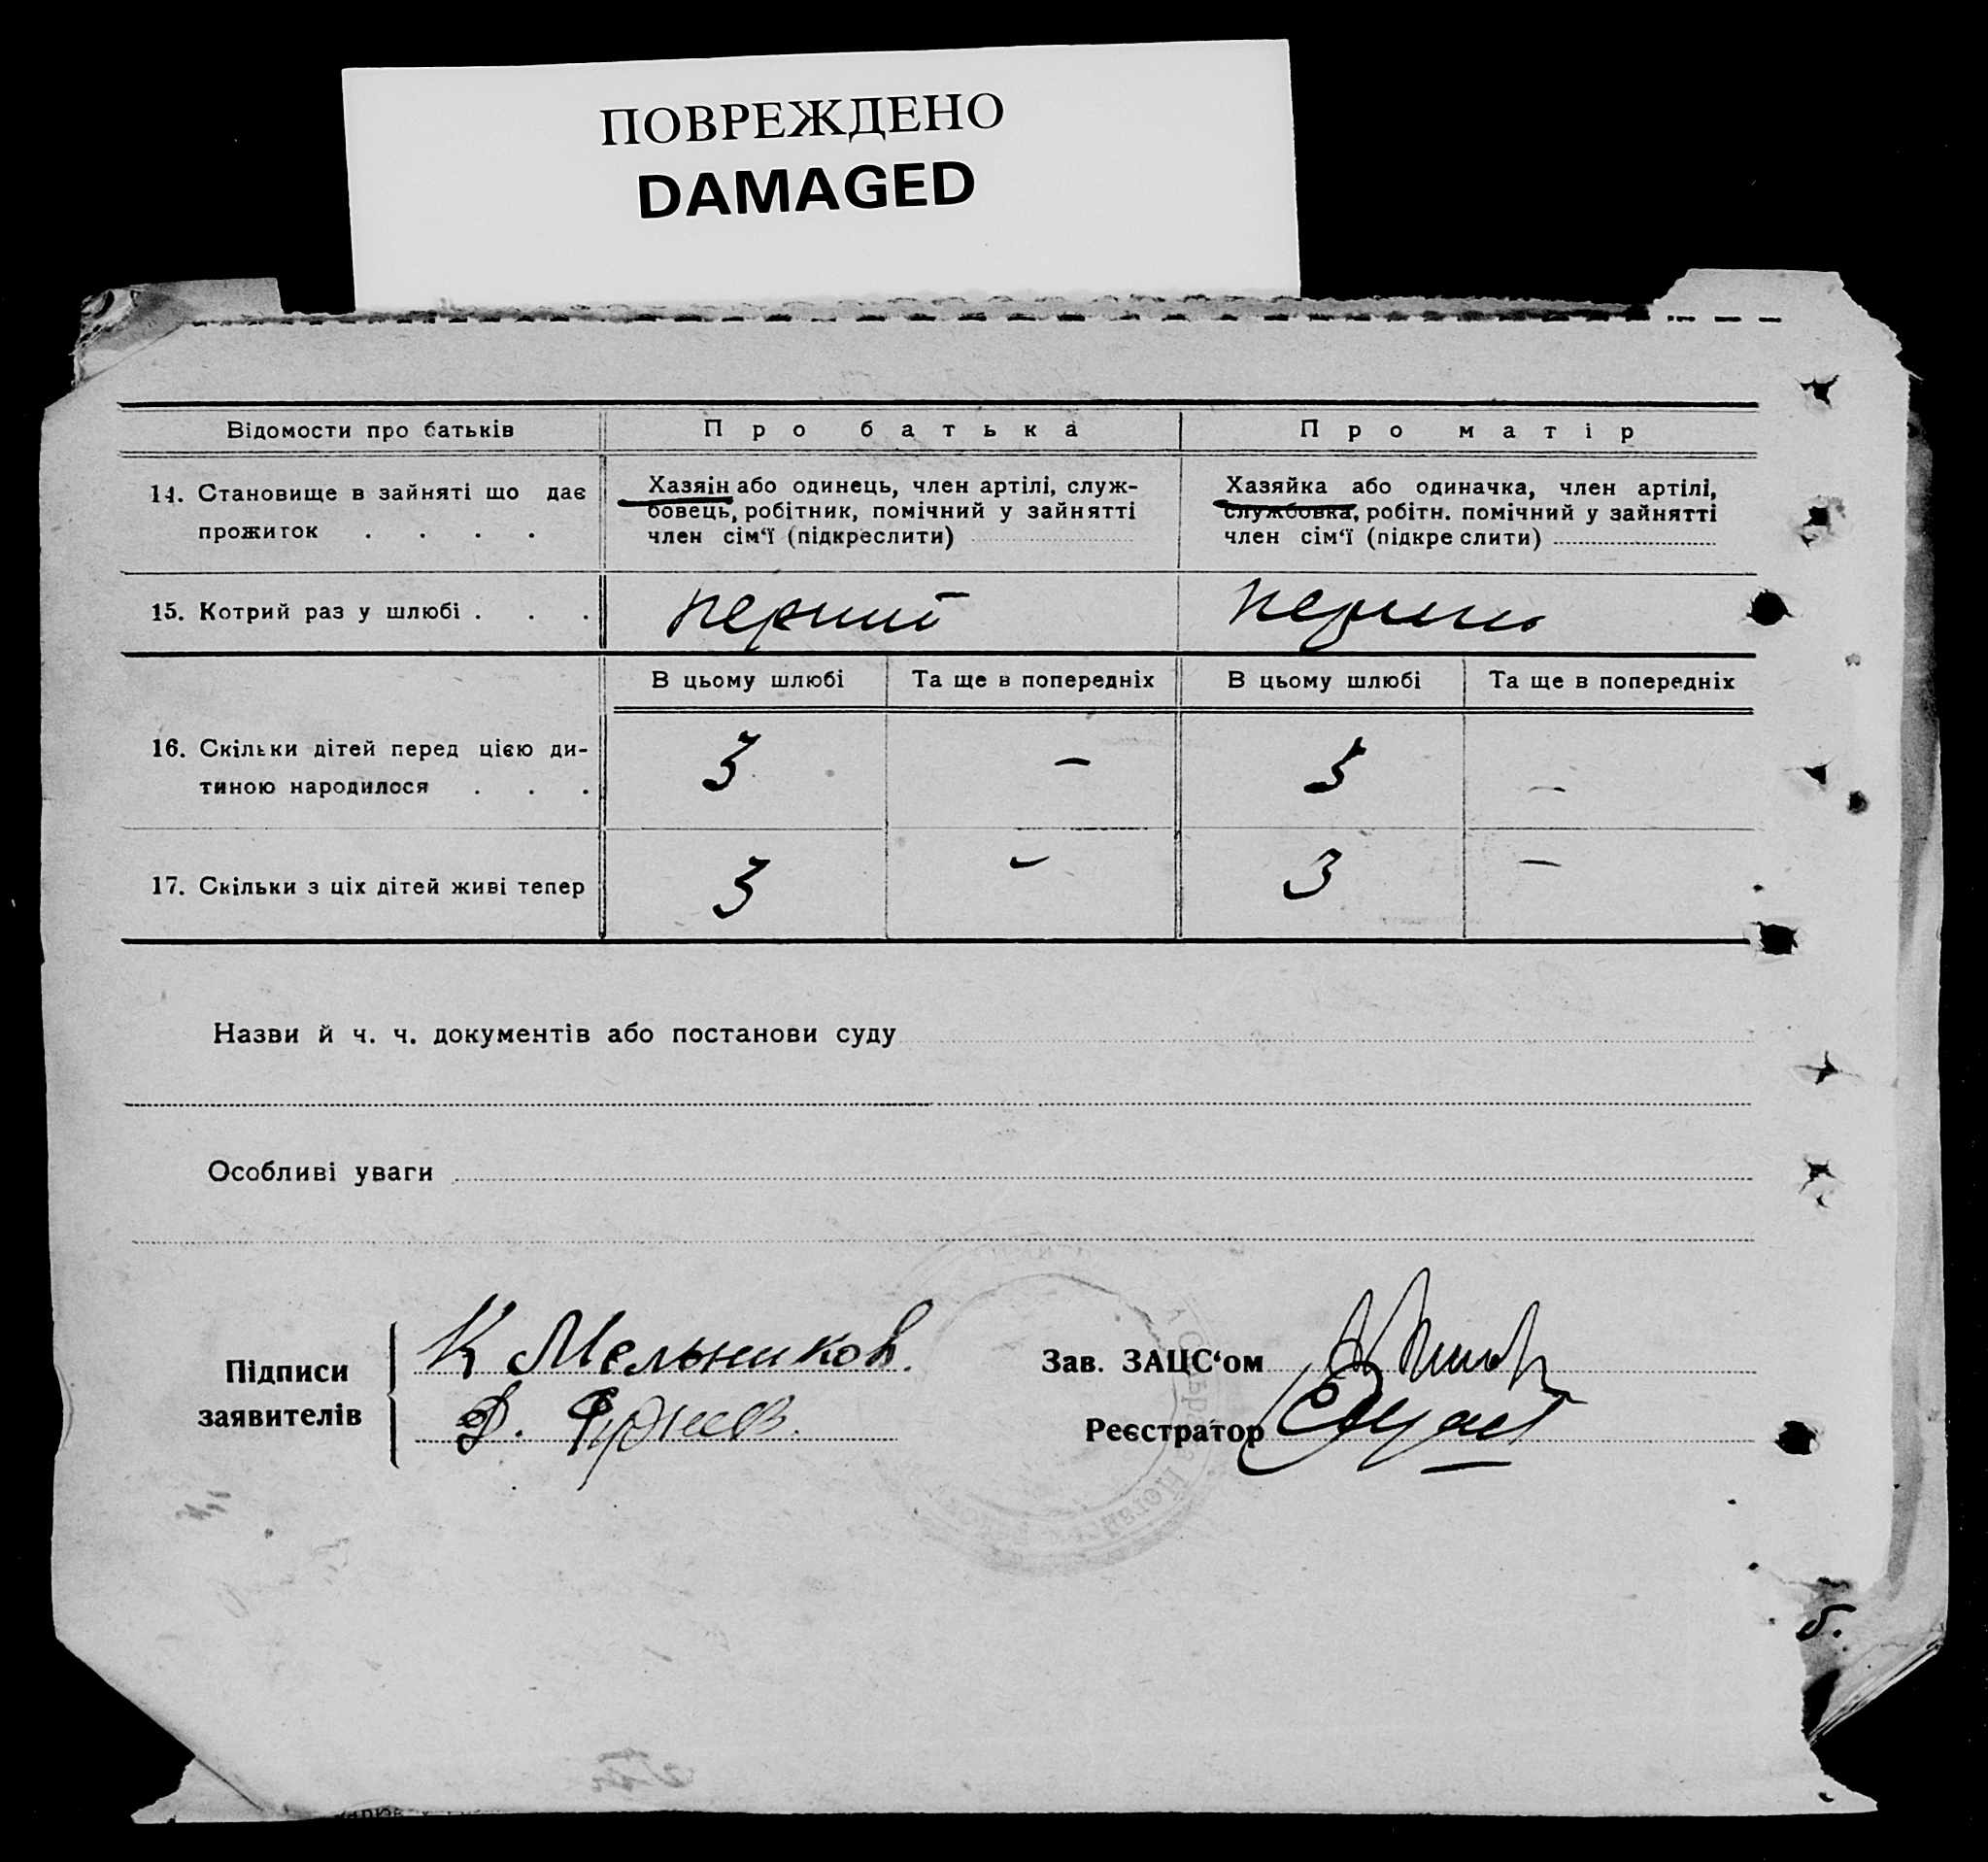 ПОВРЕЖДЕНО
DAMAGED
Відомости про батьків Про батька Про матір
14. Становище в зайняті що дає прожиток . . . .
Хазяін або одинець, член артілі, служ-
бовець, робітник, помічний у зайнятті
член сім‘ї (підкреслити)
Хазяйка або одиначка, член артілі,
службовка, робітн. помічний у зайнятті
член сім‘ї (підкреслити)
15. Котрий раз у шлюбі . . . перший перший
В цьому шлюбі Та ще в попередніх В цьому шлюбі Та ще в попередніх
16. Скільки дітей перед цією ди-
тиною народилося . . . 3 – 3 –
17. Скільки з ціх дітей живі тепер 3 – 3 –
Назви й ч. ч. документів або постанови суду
Особливі уваги
Підписи
заявителів
К Мельников.
Д.
Зав. ЗАЦС‘ом
Реєстратор
б.